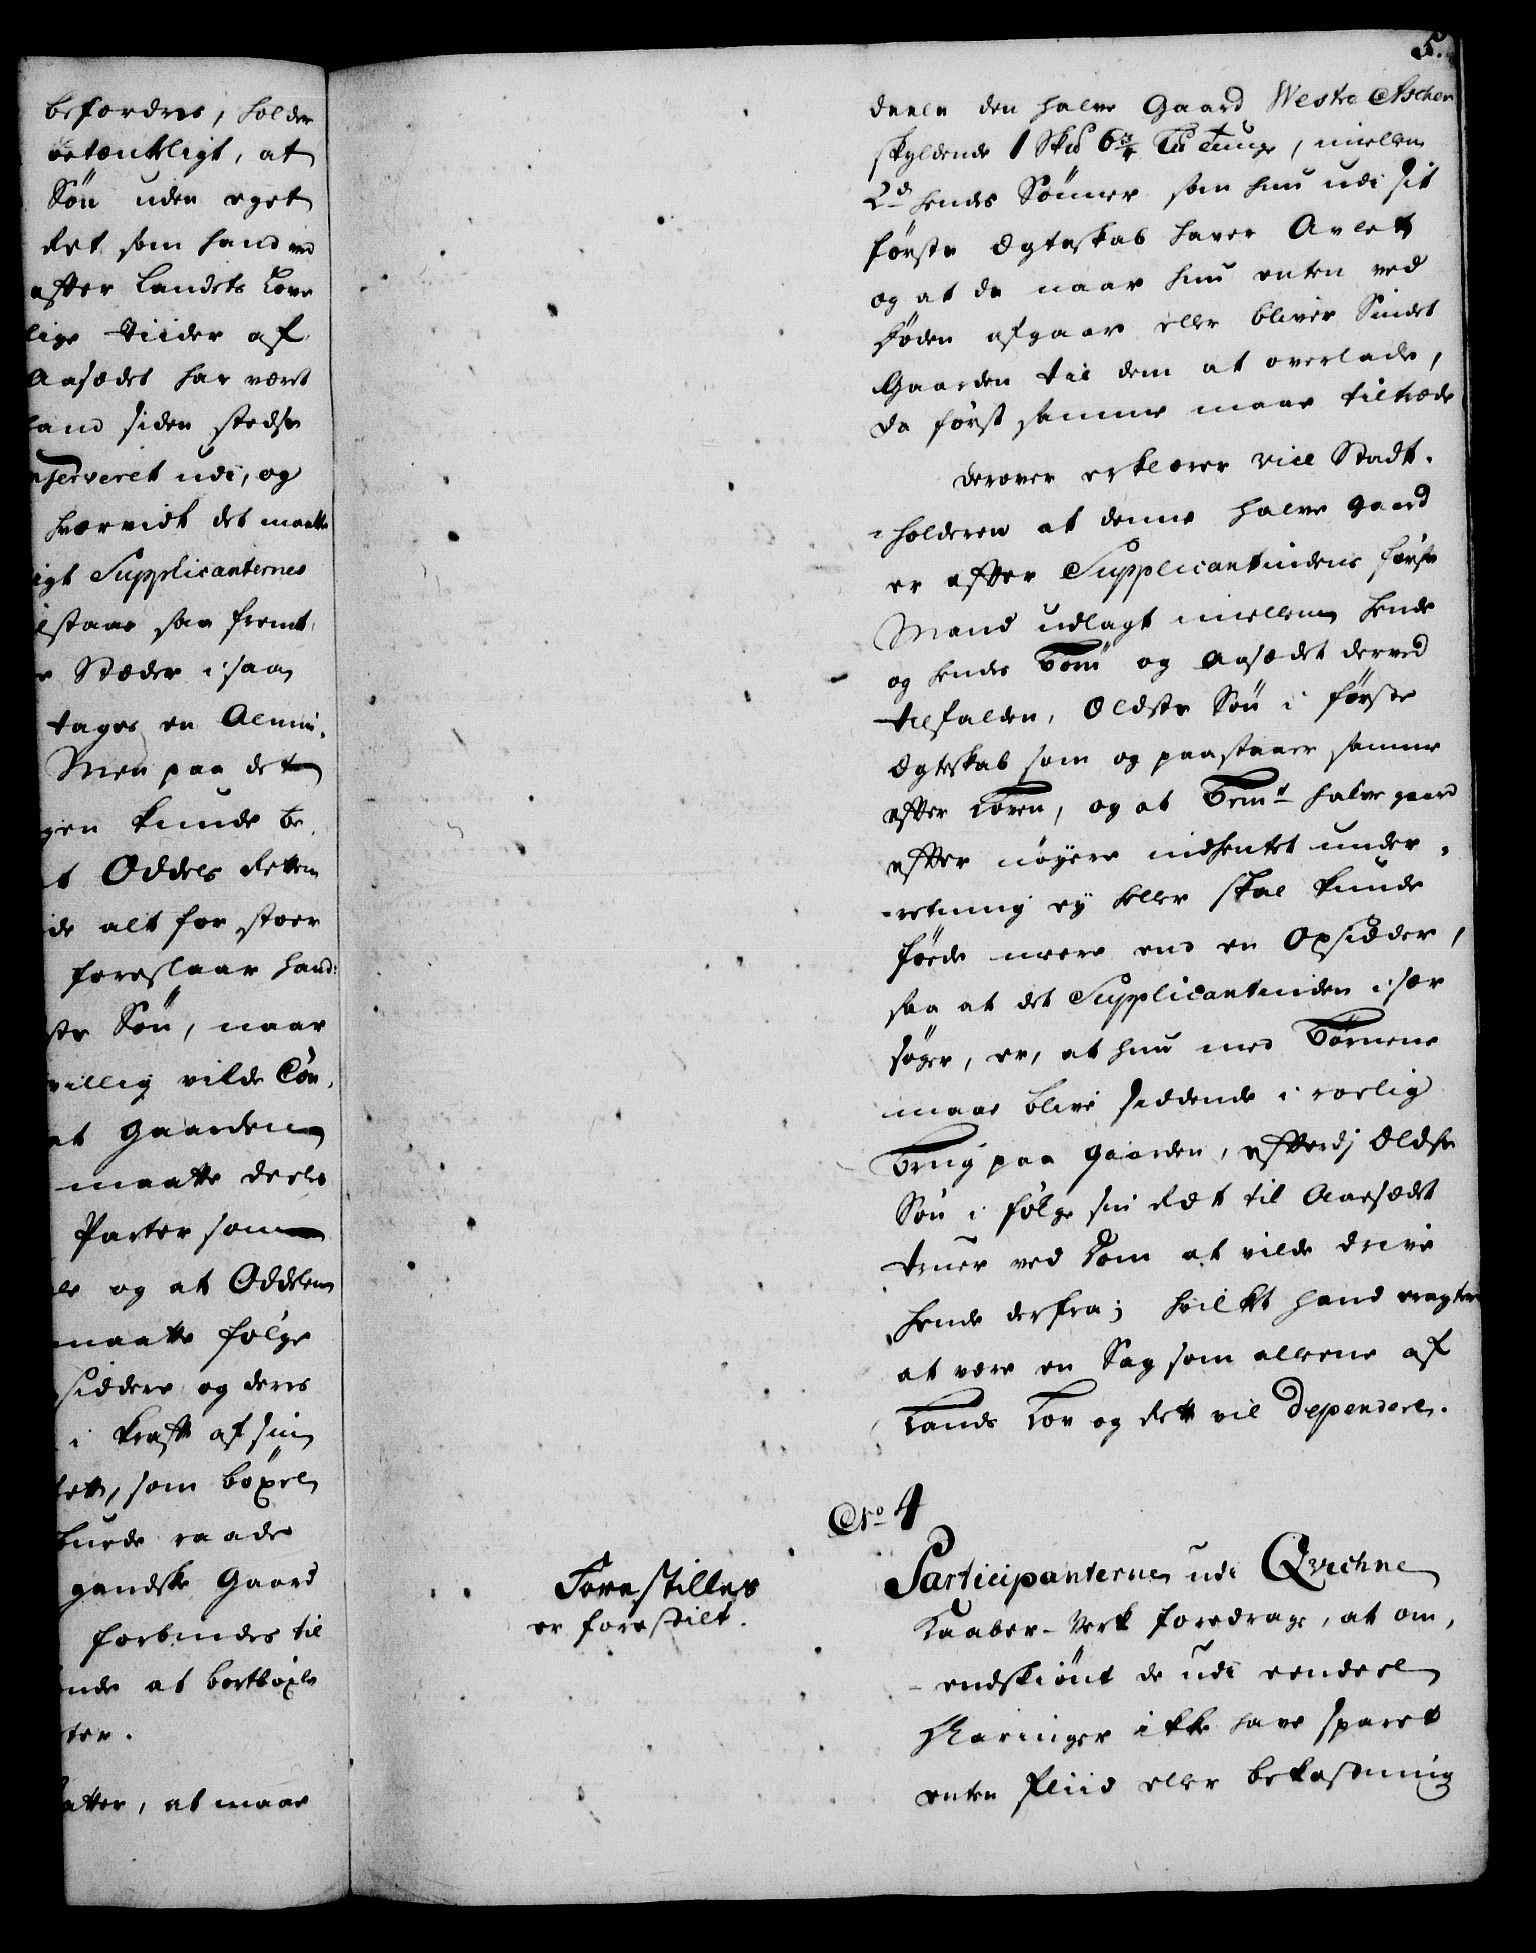 befordres, holder
betænkeligt, at
Søn uden eget
Ret som hand ved
efter Landets Love
lige Tiider af
Aasædet har været
hand siden stedse
nserveret udi, og
hvorvidt det maatte
igt Supplicanternes
lstaae saa fremt
e Stæder i saa
tages en Almin,
Men paa det
gen kunde be,
t Oddels Retten
de alt for stoer
foreslaar hand:
ste Søn, naar
villig vilde Con,
at Gaarden
maatte deeles
Parter som
le og at Oddelen
maatte følge
siddere og deres
i kraft af sin
ett, som böxel
burde raade
gandske Gaard
forbindes til
ende at bortböxle
ter.
atter, at maae
5.
deele den halve Gaard Westre Ascher
skyldende 1 Skd 6 3/4 Ld Tunge, imellem
2de hendes Sønner som hun udi sit
første Ægteskab haver Avlet
og at de naar hun enten ved
Døden afgaar eller bliver Sindet
Gaarden til dem at overlade,
da først samme maae tiltræde
Derover erklærer vice Stadt-
=holderen at denne halve gaard
er efter Supplicantindens første
Mand udlagt imellem hende
og hendes Børn og Aasædet derved
tilfalden, Ældste Søn i første
Ægteskab som og paastaaer samme
efter Loven, og at bemte halve gaard
efter nøyere indhentet under-
=retning ey heller skal kunde
føede meere end en Opsidder,
saa at det Supplicantinden i sær
søger, er, at hun med Børnene
maae blive siddende i roelig
Brug paa gaarden, efterdj Ældste
Søn i følge sin Ret til Aasædet
truer ved Dom at vilde drive
hende derfra; hvilket hand eragter
at være en Sag som alleene af
Lands Lov og Rett vil dependere.
No. 4
Forestilles
er forestilt.
Participanterne udi Qvichne
Kaaber-Verk foredrage, at om,
-endskiønt de udi eendeel
Aaringer ikke have sparet
enten Fliid eller bekostning